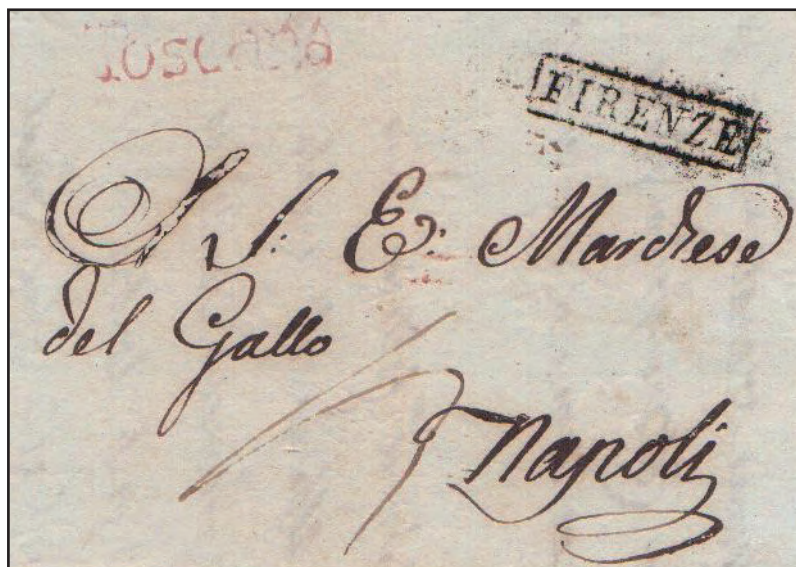 TOSCANA
FIRENZE
A S: E: Marchese
del Gallo
Napoli